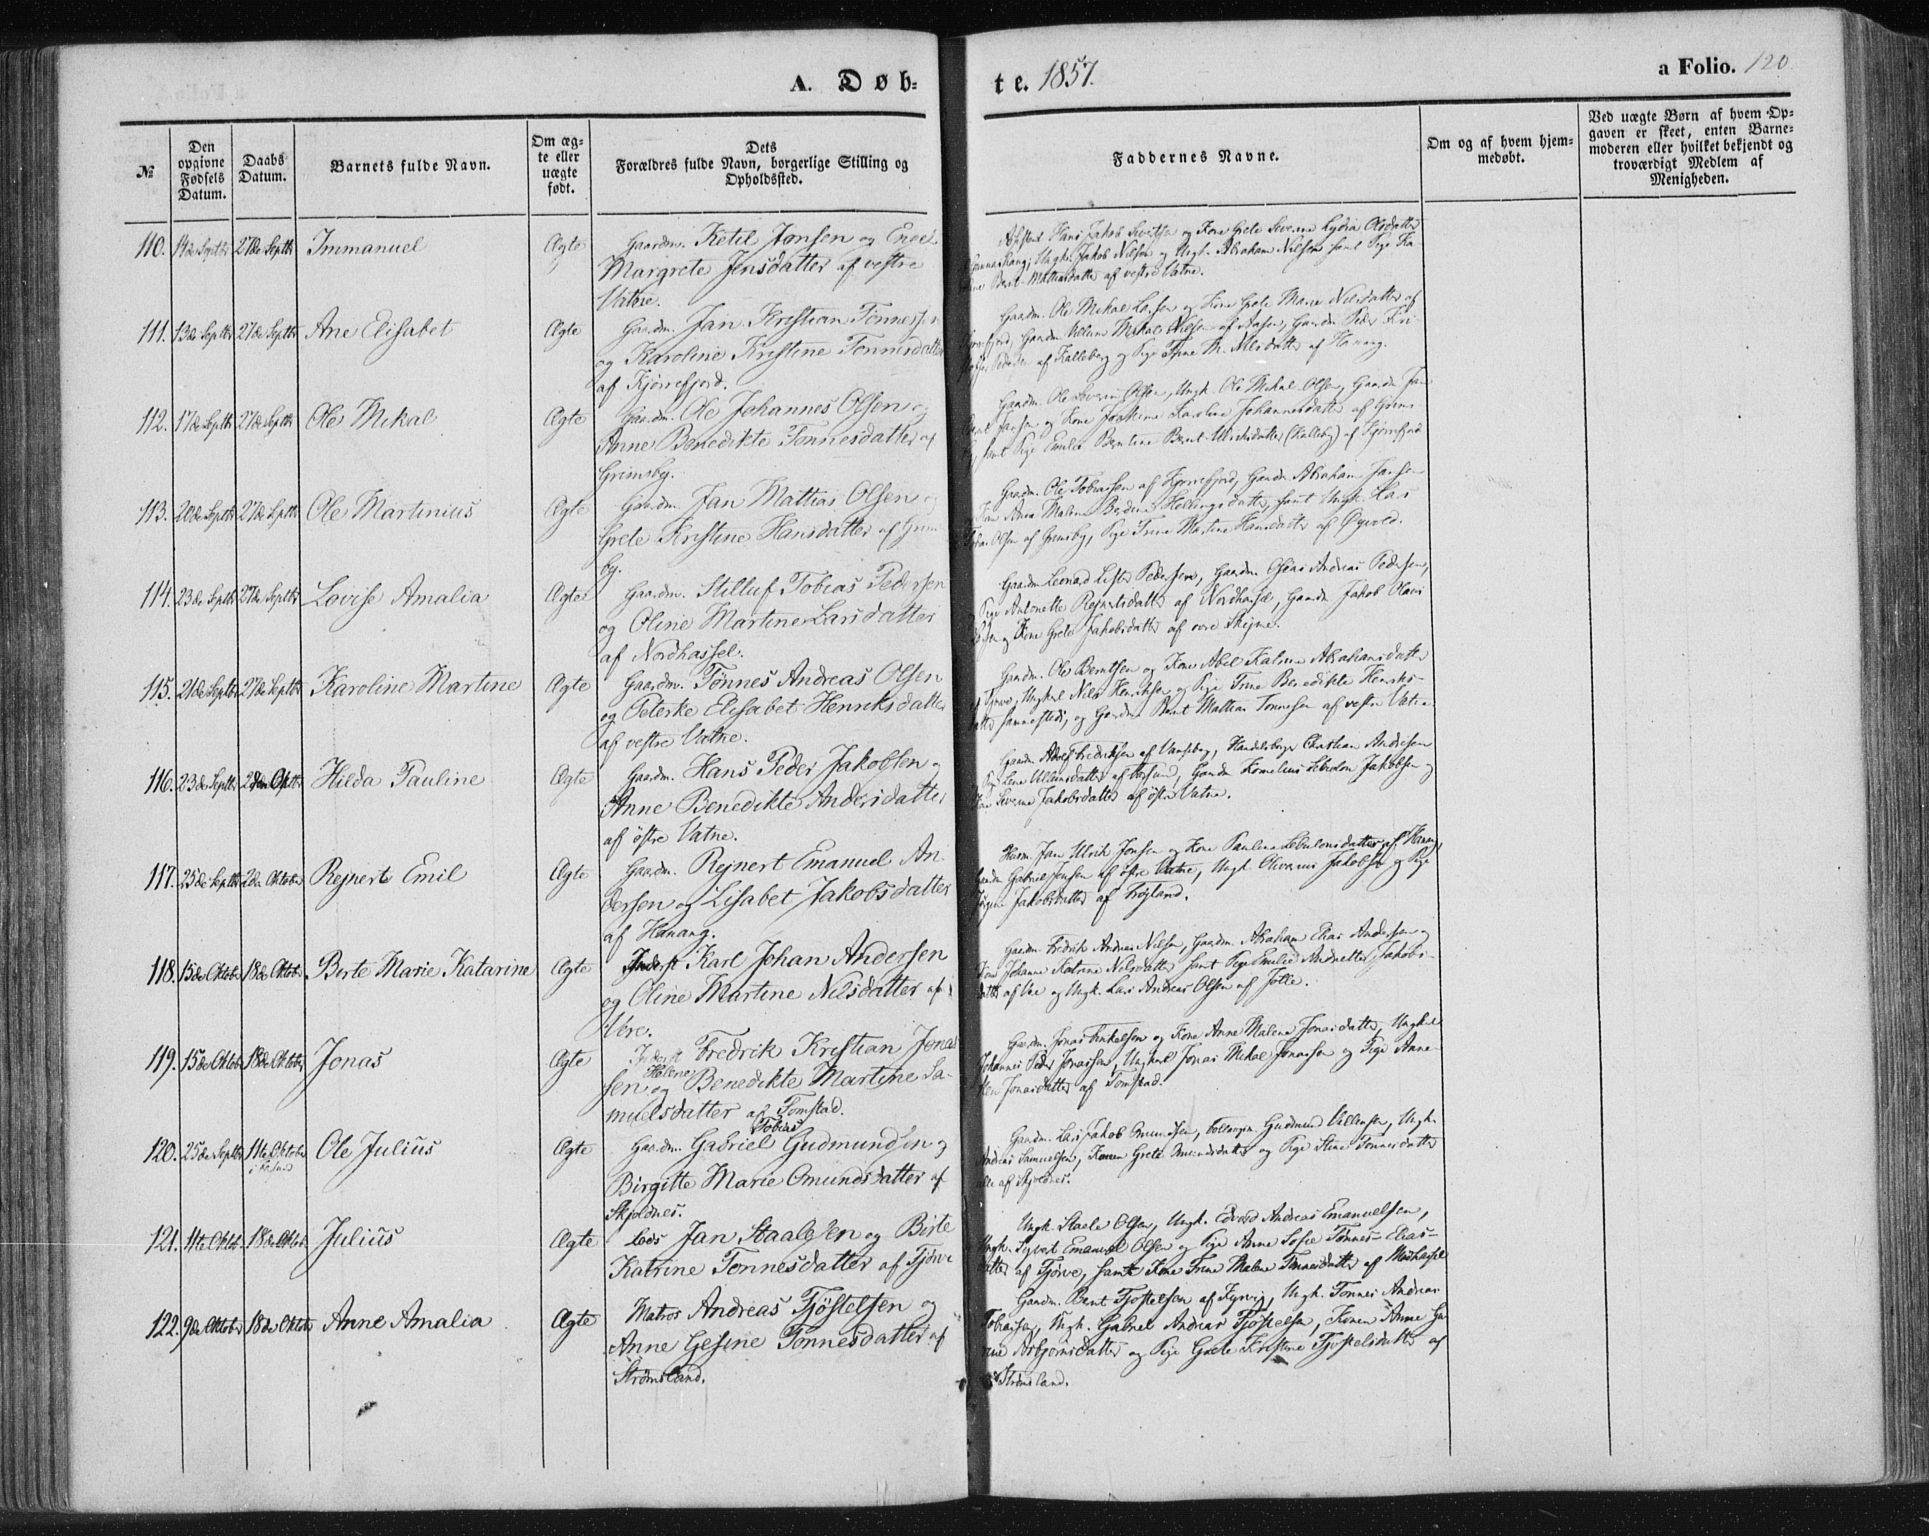 A. Døb-
te. 1857.
a Folio. 120
№
Den opgivne Fødsels Datum.
Daabs Datum.
Barnets fulde Navn.
Om ægte eller uægte født.
Dets Forældres fulde Navn, borgerlige Stilling og Opholdssted.
Faddernes Navne.
Om og af hvem hjemmedøbt.
Ved uægte Børn af hvem Opgaven er skeet, enten Barnemoderen eller hvilket bekjendt og troværdigt Medlem af Menigheden.
110. 14de Septbr 27de Septbr Immanuel Ægte Gaardm. Ketil Jonsen og Engel
Margrete Jensdatter af vestre
Vatne.
Hans Jakob Sivertsen og Kone Grete Severine Lydia Olsdatter
Ungk. Jakob Nilsen og Ungk. Abraham Nilsen samt Pige
Berit Mathiasdatter af vestre Vatne.
111. 13de Septbr 27de Septbr Ane Elisabet Ægte Gaardm. Jan Kristian Tønnessen
og Karoline Kristine Tønnesdatter
af Kjørrefjord.
Gaardm. Ole Mikal Larsen og Kone Grete Marie Nilsdatter af
Gaardm. Villum Mikal Nilsen af Aasen, Gaardm. Peder
af Kalleberg og Pige Trine M. Nilsdatter af Hanang.
112. 17de Septbr 27de Septbr Ole Mikal Ægte Gaardm. Ole Johannes Olsen og
Anne Benedikte Tønnesdatter af
Grimsby.
Gaardm. Ole Severin Olsen, Ungk. Ole Mikal Olsen, Gaardm. Jan
Jansen og Kone Joakime Karoline Johannesdatter af Grims
samt Pige Emilie Berntine Bernt-Ulriksdatter (Kalleby) af Kjørrefjord
113. 20de Septbr 27de Septbr Ole Martinius Ægte Gaardm. Jan Mattias Olsen og
Grete Kristine Hansdatter af Grims
by.
Gaardm. Ole Tobiassen af Kjørrefjord, Gaardm. Abraham Jansen
Anna Malene Berdine Hellingsdatter, samt Ungk. Lars
Olsen af Grimsby, Pige Trine Martine Hansdatter af Øyvold.
114. 23de Septbr 27de Septbr Lovise Amalia Ægte Gaardm. Stilluf Tobias Pedersen
og Oline Martine Larsdatter
af Nordhassel.
Gaardm. Leonard Lister Pedersen, Gaardm. Osvas Andreas Pedersen,
Pige Antonette Rejnertsdatter af Nordhassel, Gaardm. Jakob Olaus
og Kone Grete Jakobsdatter af øvre Skeime.
115. 21de Septbr 27de Septbr Karoline Martine Ægte Gaardm. Tønnes Andreas Olsen
og Peterke Elisabet Henriksdatter
af vestre Vatne.
Gaardm. Ole Berntsen og Kone Abel Katrine Abrahamsdatter
Ungkarl Nils Henriksen og Pige Trine Benedikte Henriks-
datter sammesteds, og Gaardm. Bernt Mathias Tønnesen af vestre Vatne
116. 23de Septbr 2den Oktbr Hilda Pauline Ægte Gaardm. Hans Peder Jakobsen og
Anne Benedikte Andersdatter
af østre Vatne.
Gaardm. Adolf Fredriksen af Vansebog, Handelsborger Christian Andresen
Lene Villumsdatter af Farsund, Gaardm. Kornelius Sebulon Jakobsen og
Severine Jakobsdatter af østre Vatne.
117. 25de Septbr 2den Oktober Rejnert Emil Ægte Gaardm. Rejnert Emanuel An-
dersen og Lisabet Jakobsdatter
af Hanang.
Husm. Jan Ulrik Jensen og Kone Pauline Sebulonsdatter af Hanang,
Gaardm. Gabriel Jensen af østre Vatne, Ungk. Olivarius Jakobsen og Pige
Jørgine Jakobsdatter af Frøyland.
118. 15de Oktober 18de Oktober Berte Marie Katarine Ægte Inderst Karl Johan Andersen
og Oline Martine Nilsdatter af
Vere.
Gaardm. Fredrik Andreas Nilsen, Gaardm. Abraham Elias Andersen og
Kone Johanne Katrine Nilsdatter samt Pige Emilie Andrette Jakobs-
datter af Vre og Ungk. Lars Andreas Olsen af Jølle.
119. 15de Oktober 18de Oktober Jonas Ægte Inderst Fredrik Kristian Jonas
sen og Helene Benedikte Martine Sa-
muelsdatter af Tomstad.
Gaardm. Jonas Tørkelsen og Kone Anne Malene Jonasdatter, Ungkarl
Johannes Peder Jonassen, Ungkarl Jonas Mikal Jonassen og Pige Anne
Jonasdatter af Tomstad.
120. 25de Septbr 11te Oktober i Farsund Ole Julius Ægte Gaardm. Gabriel Tobias Gudmundsen og
Birgitte Marie Omundsdatter af
Skjoldnes.
Gaardm. Lars Jakob Omundsen, Gudmund Villumsen, Ungk.
Andreas Samuelsen, Konen Grete Omundsdatter og Pige Stine Tønnesdatter
alle af Skjoldnes.
121. 11te Oktbr 18de Oktbr Julius Ægte Lods Jan Staalesen og Birte
Katrine Tønnesdatter af Tjørve
Ungk. Staale Olsen, Ungk. Edvard Andreas Emanuelsen,
Ungk. Sigvart Emanuel Olsen og Pige Anne Sofie Tønnes-Elias-
datter af Tjørve, samt Kone Trine Malene Tønnesdatter af Midthassel
122. 9de Oktober 18de Oktober Anne Amalia Ægte Matros Andreas Tjøstelsen og
Anne Gesine Tønnesdatter af
Strømsland.
Gaardm. Bernt Tjøstelsen af Ungk. Tønnes Andreas
Tobiassen, Ungk. Gabriel Andreas Tjøstelsen, Konen Anne
Asbjørnsdatter og Pige Grete Kristine Tjøstelsdatter af
Strømsland.